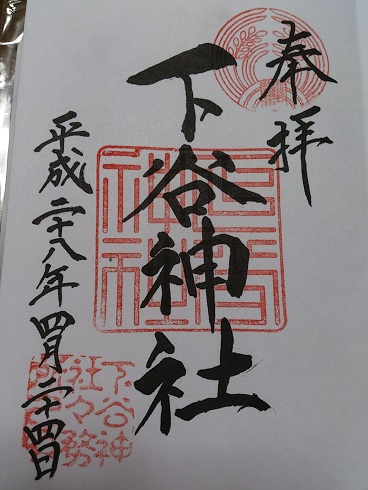 奉拝
下谷神社
平成二十八年四月二十四日
下谷神
社々務
所